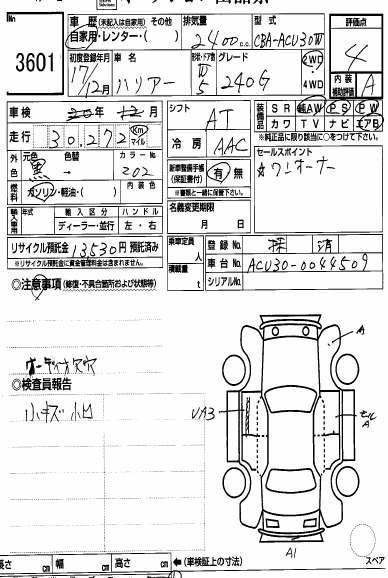 No
3601
車歴 (未記入は自家用) その他
自家用・レンター・( )
排気量
2400cc
型式
CBA-ACU30W
評価点
4
初度登録年月
17/12月
車名
ハリアー
形状・ドア数
5
グレード
240G
2WD
4WD
内装
補助評価
A
車検 20年 12月
走行 30,272 Km マイル
シフト
AT
冷房
AAC
装備品
SR AW PS PW
カワ TV ナビ エアB
※純正品に限り該当に○をつけて下さい。
外色
元色 色替 カラーNo.
黒 → 202
燃料
ガソリン・軽油・( )
内装色
新車整備手帳
(保証書付)
有 無
※書類と一緒に保管下さい。
セールスポイント
☆ワンオーナー
輸入車用
年式 輸入区分 ハンドル
ディーラー・並行 左・右
名義変更期限
月 日
リサイクル預託金 13530円 預託済み
※リサイクル預託金に資金管理料金は含まれません。
乗車定員 人
積載量 t
登録No. 抹 済
車台No. ACU30-0044509
シリアルNo.
◎注意事項 (修復・不具合箇所および状態等)
オーディオ欠穴
◎検査員報告
小キズ 小凹
A
UA3
A
A1
長さ cm 幅 cm 高さ cm ←(車検証上の寸法)
スペア